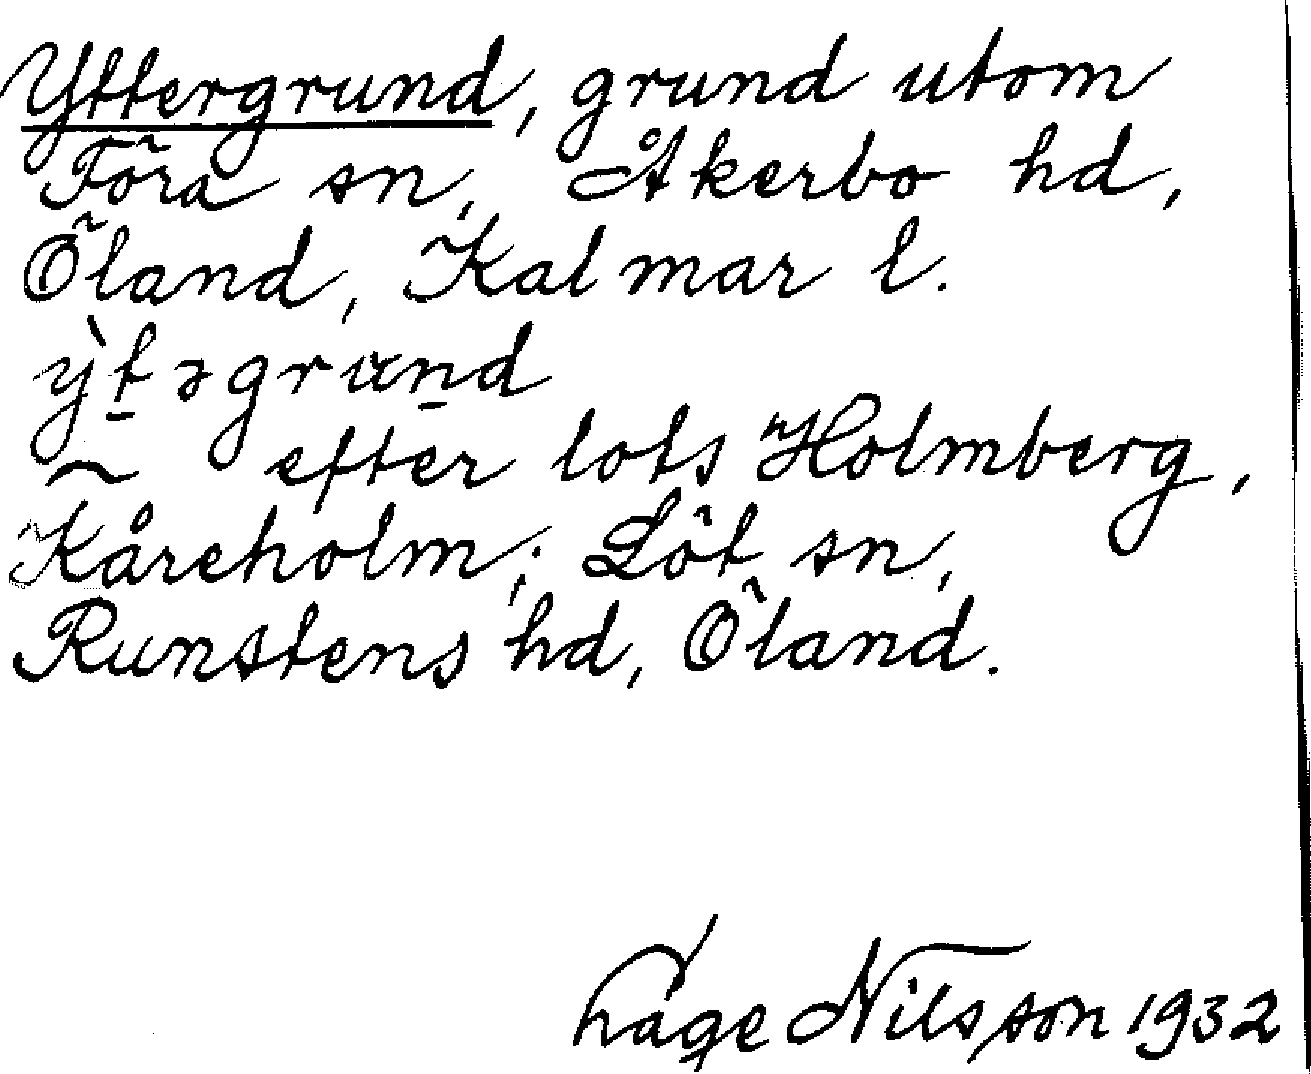 Yttergrund, grund utom
Föra sn, Åkerbo hd,
Öland, Kalmar l.
ỳt̠əgrun̠d
~ efter lots Holmberg,
Kåreholm; Löt sn,
Runstens hd, Öland.
Håge Nilsson 1932